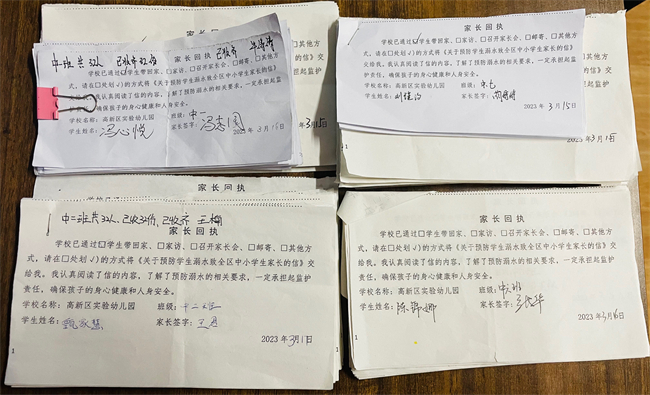 中一班共32人 已收齐
家长回执
学校已通过☑学生带回家、□家访、□召开家长会、□邮寄、□其他方
式，请在□处划√)的方式将《关于预防学生溺水致全区中小学生家长的信》
交给我。我认真阅读了信的内容，了解了预防溺水的相关要求，一定承担起监
确保孩子的身心健康和人身安全。
学校名称：高新区实验幼儿园 班级：中一
学生姓名：冯心悦 家长签字：
2023年3月15日
家长回执
学校已通过☑学生带回家、□家访、□召开家长会、□邮寄、□其他方
式，请在□处划√)的方式将《关于预防学生溺水致全区中小学生家长的信》
交给我。我认真阅读了信的内容，了解了预防溺水的相关要求，一定承担起监
护责任，确保孩子的身心健康和人身安全。
学校名称：高新区实验幼儿园 班级：
学生姓名： 家长签字：
2023年3月15日
家长回执
中二班共32人，已收32份，已收齐 王梅
家长回执
学校已通过□学生带回家、□家访、□召开家长会、□邮寄、□其他方
式，请在□处划√)的方式将《关于预防学生溺水致全区中小学生家长的信》
交给我。我认真阅读了信的内容，了解了预防溺水的相关要求，一定承担起监护
责任，确保孩子的身心健康和人身安全。
学校名称：高新区实验幼儿园 班级：
学生姓名：甄家慧 家长签字：
2023年3月
1
家长回执
学校已通过□学生带回家、□家访、□召开家长会、□邮寄、□其他方
式，请在□处划√)的方式将《关于预防学生溺水致全区中小学生家长的信》
交给我。我认真阅读了信的内容，了解了预防溺水的相关要求，一定承担起监护
责任，确保孩子的身心健康和人身安全。
学校名称：高新区实验幼儿园 班级：
学生姓名： 家长签字：
2023年3月16日
1